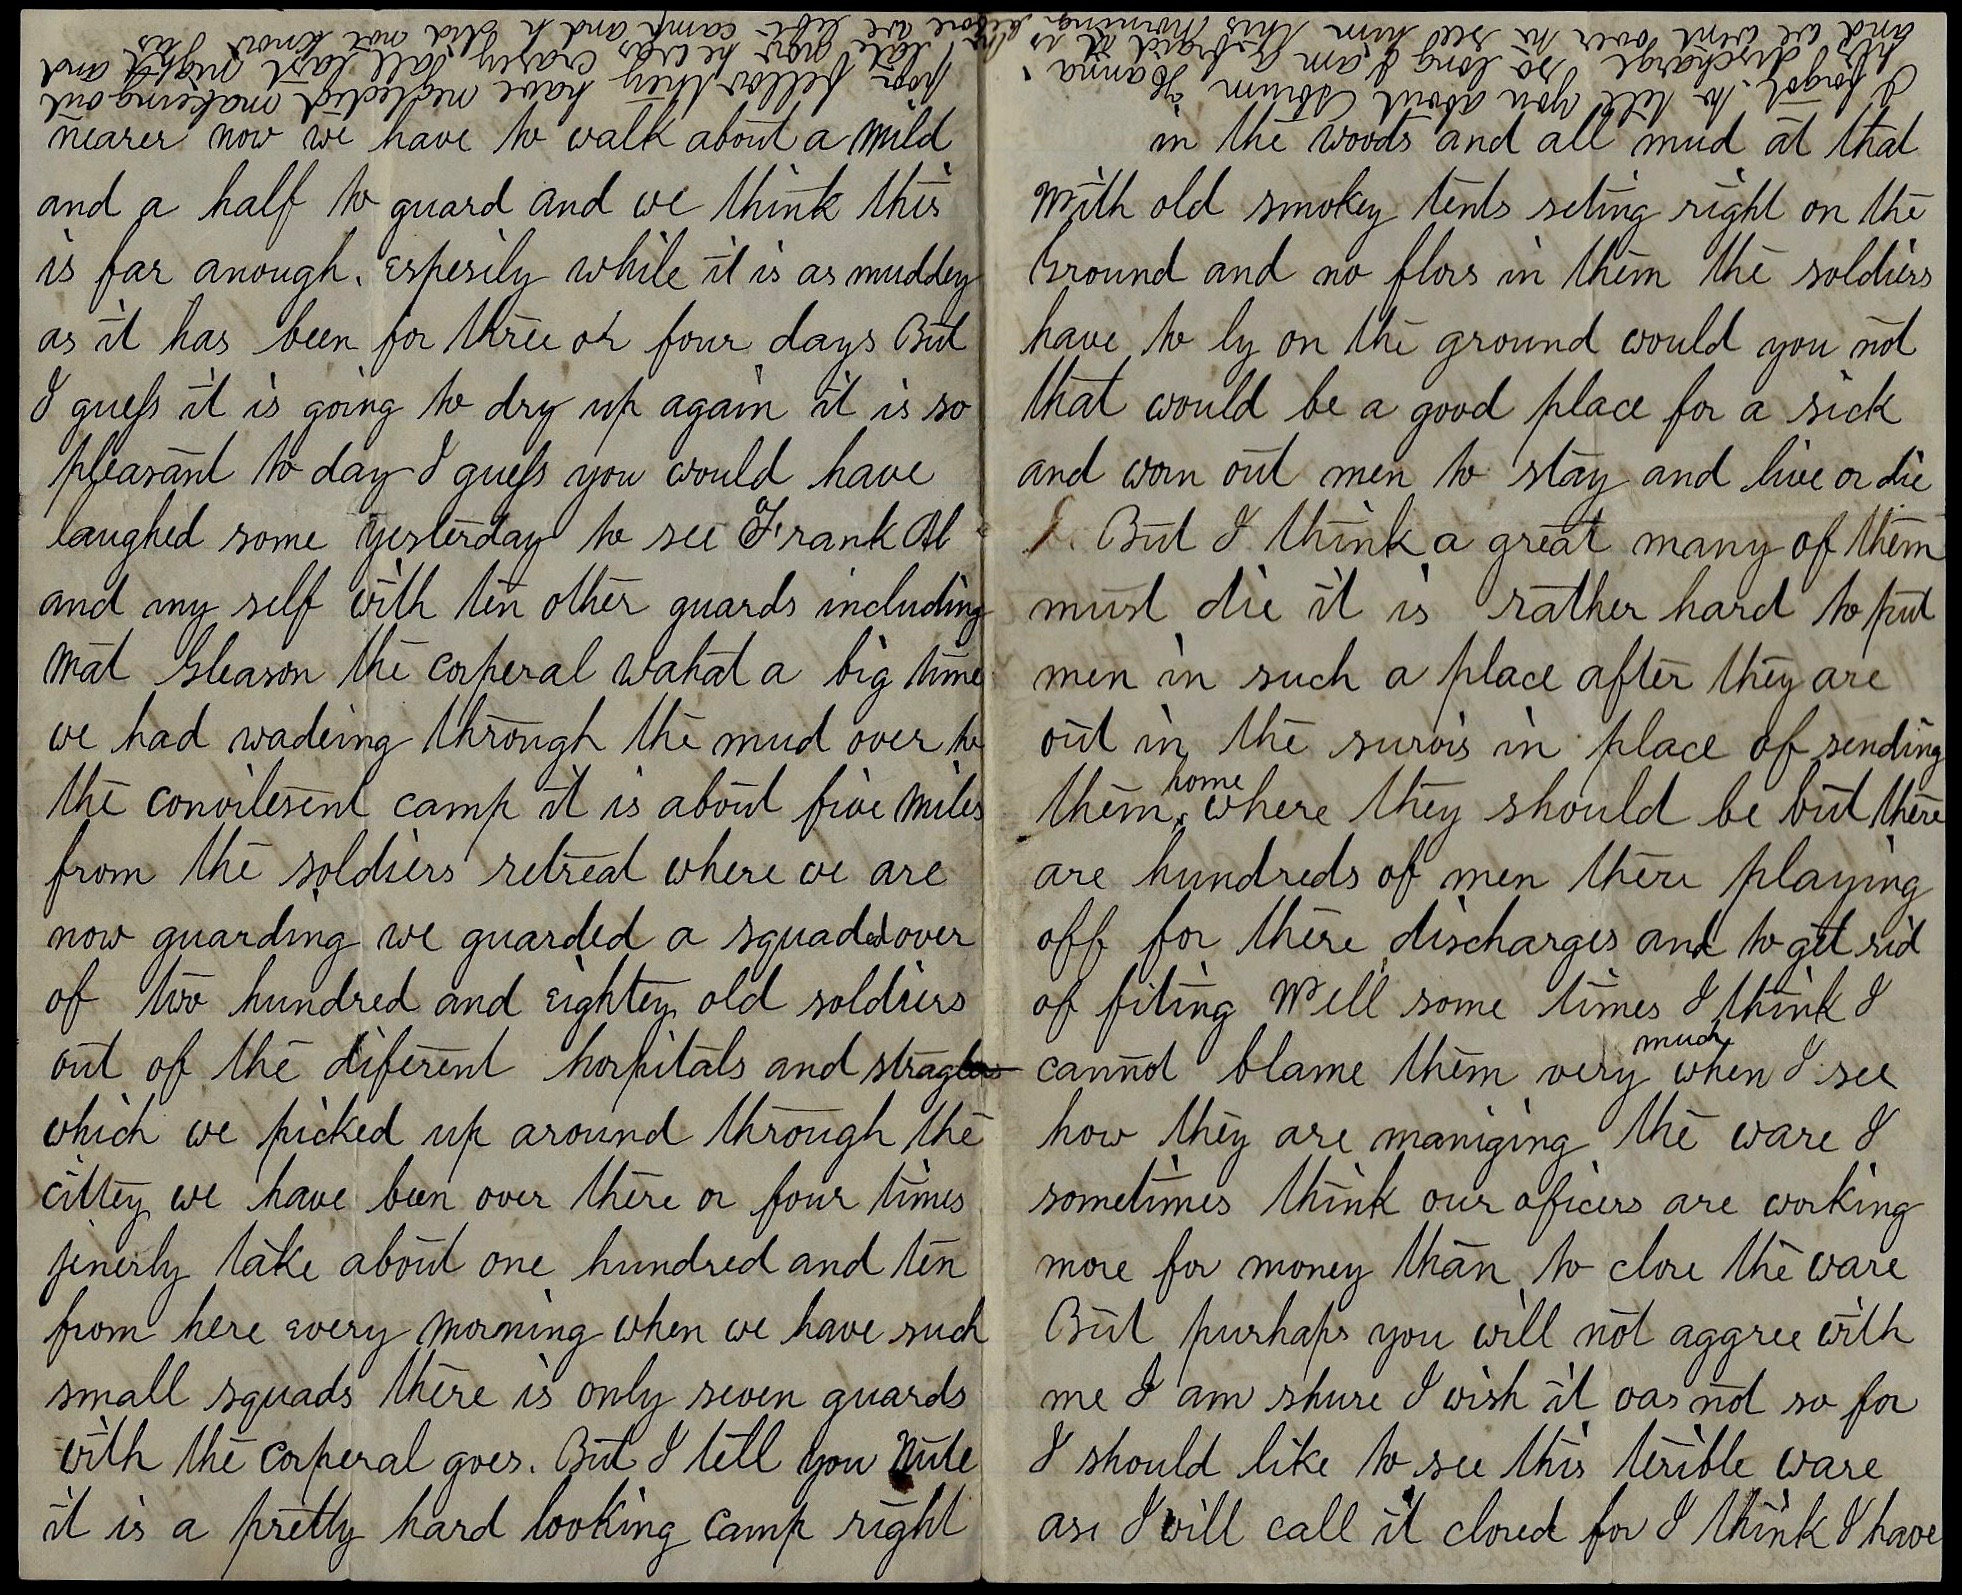 I forgot to tell you about Storum Hanna. poor fellow they have neglected makeing out
his discharge so long I am afraid it is to late now he was crazey all last night and
and we went over to see him this morning before we left camp and h did not know us
nearer now we have to walk about a mild
and a half to guard and we think this
is far anough. espesily while it is as muddey
as it has been for three or four days But
I guess it is going to dry up again it is so
pleasant to day I guess you would have
laughed some yesterday to see Frank Al
and my self with ten other guards including
Mat Gleason the corperal wahat a big time
we had wadeing through the mud over to
the convilesent camp it is about five miles
from the soldiers retreat where we are
now guarding we guarded a squaded over
of two hundred and eightey old soldiers
out of the diferent hospitals and straglers
which we picked up around through the
cittey we have been over there or four times
jenerly take about one hundred and ten
from here every morning when we have such
small squads there is only seven guards
with the corperal goes. But I tell you Nute
it is a pretty hard looking camp right
in the woods and all mud at that
With old smokey tents seting right on the
Ground and no flors in them the soldiers
have to ly on the ground would you not
that would be a good place for a sick
and worn out men to stay and live or die
But I think a great many of them
must die it is rather hard to put
men in such a place after they are
out in the survis in place of sending
them home where they should be but there
are hundreds of men there playing
off for there discharges and to get rid
of fiting Well some times I think I
cannot blame them very much when I see
how they are maniging the ware I
sometimes think our oficers are working
more for money than to close the ware
But purhaps you will not aggree with
me I am shure I wish it was not so for
I should like to see this terible ware
as I will call it closed for I think I have